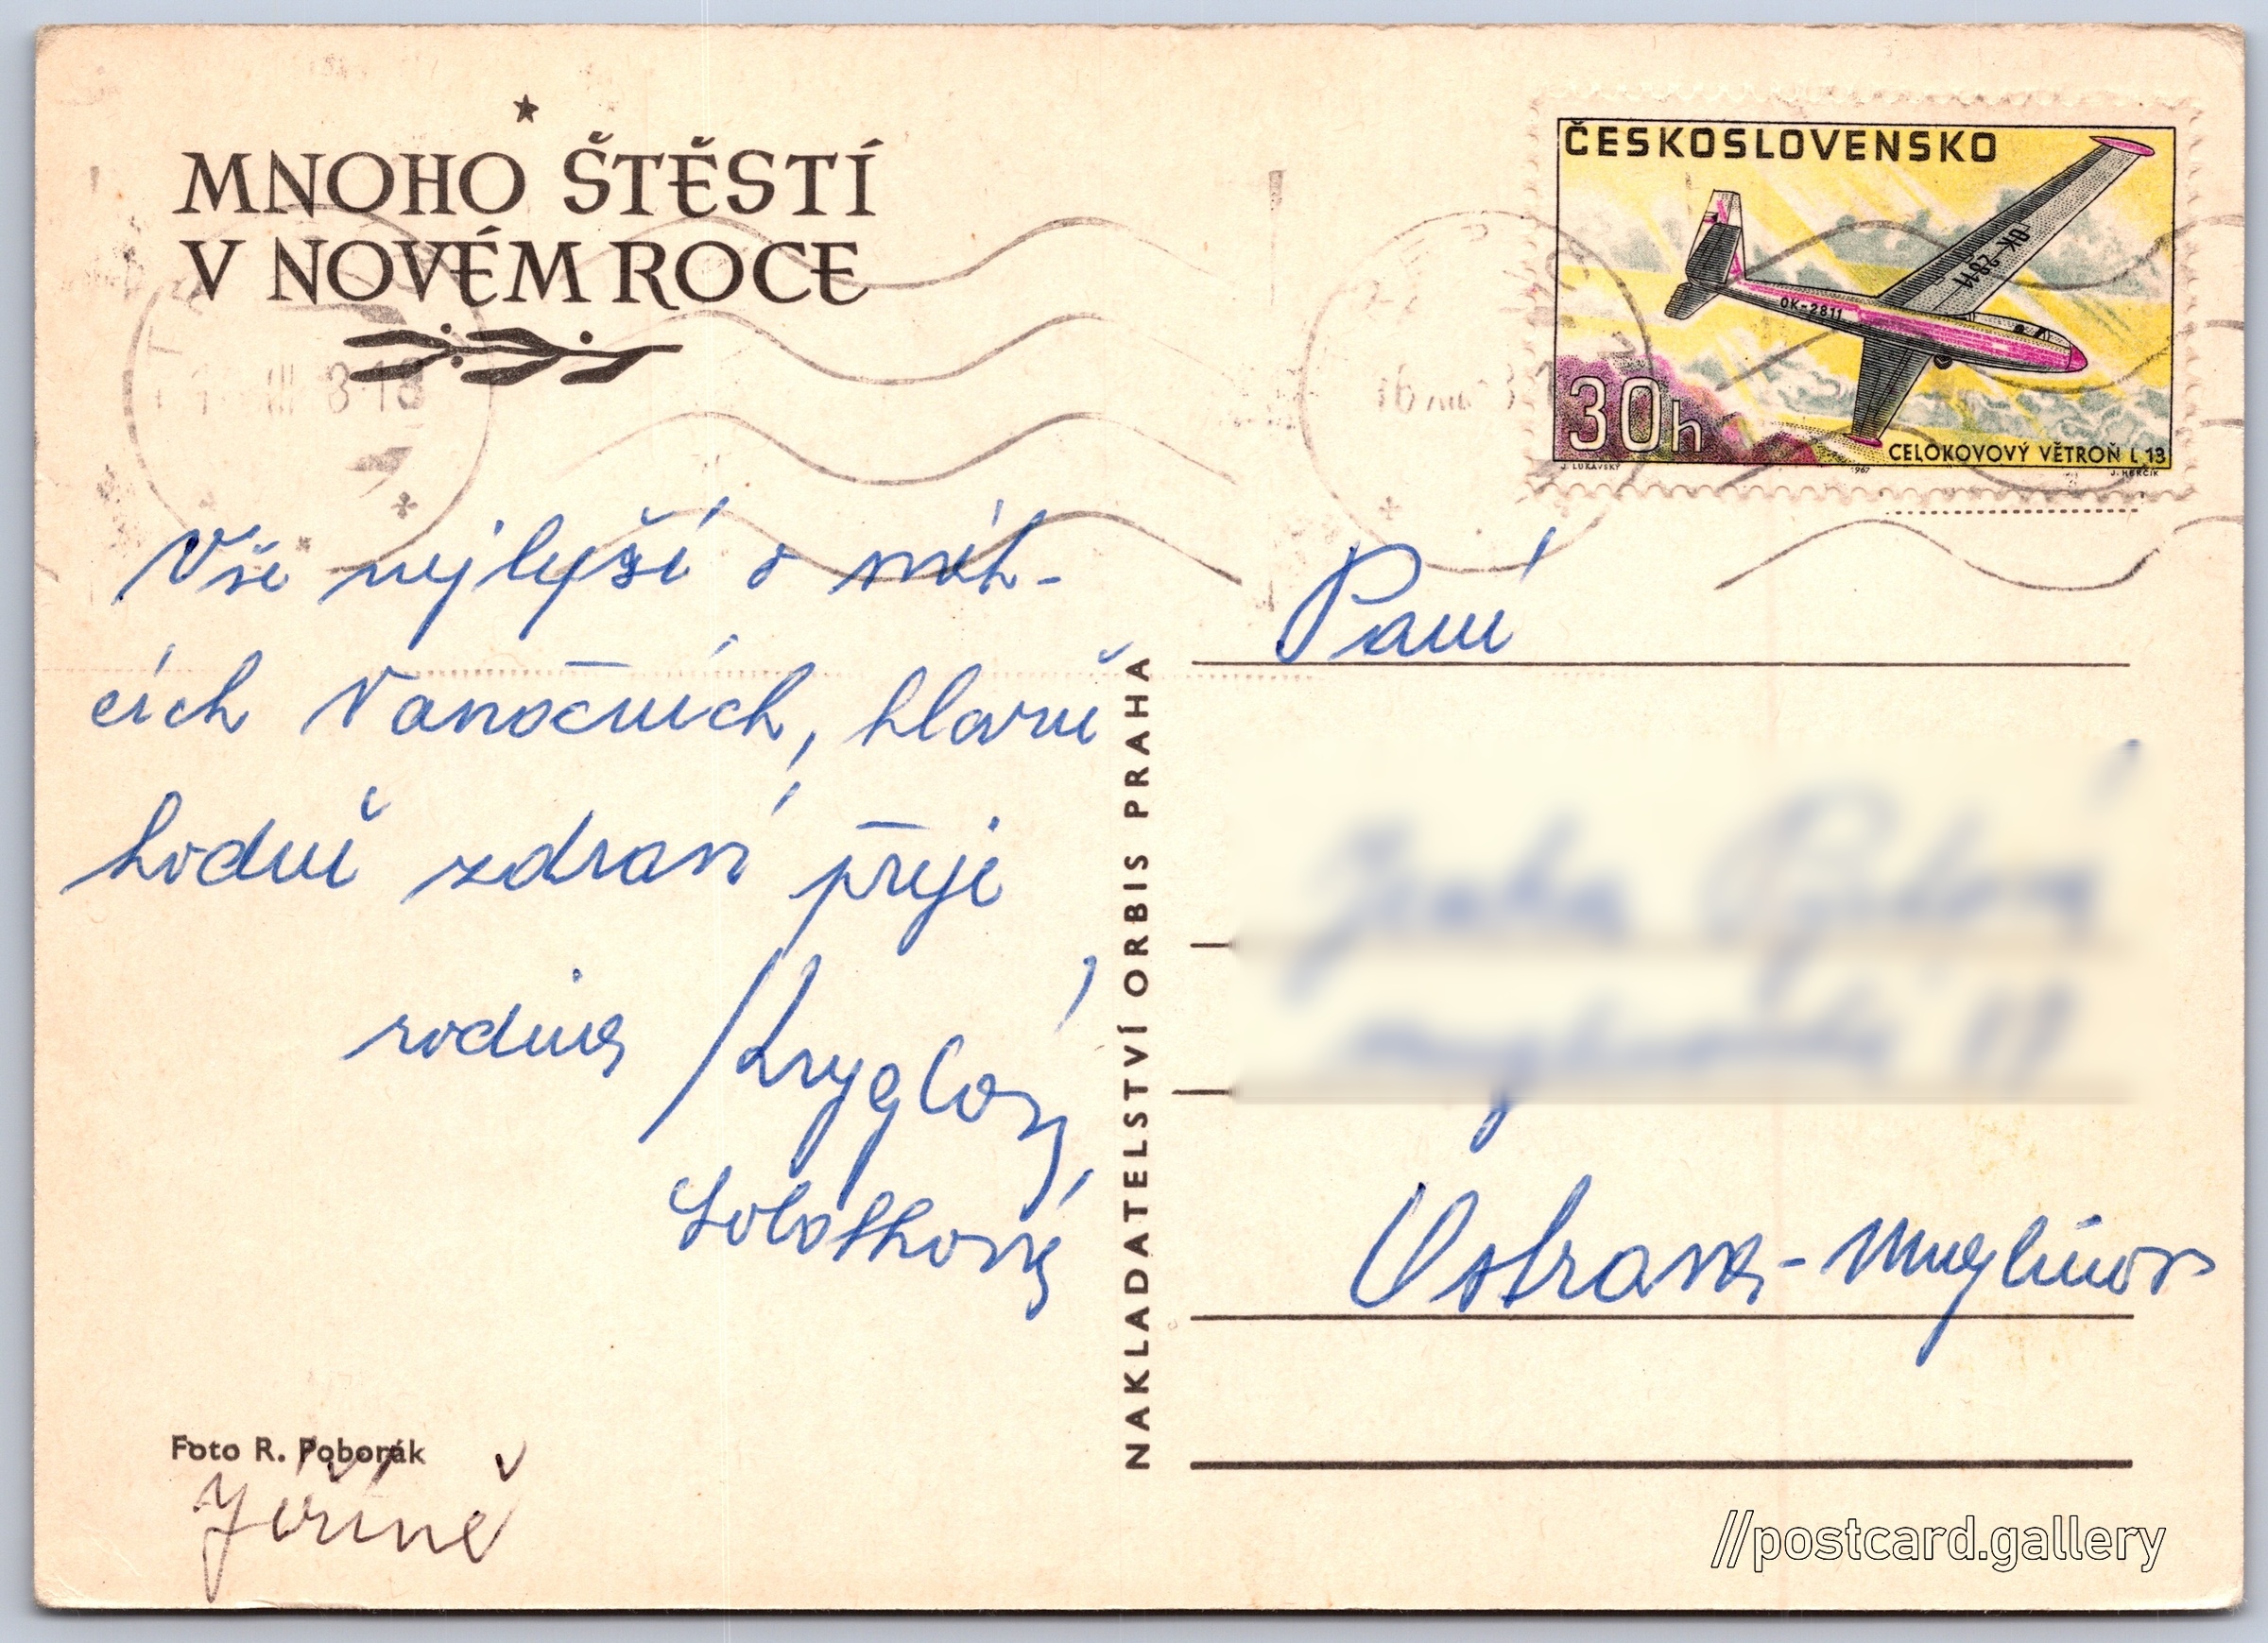 MNOHO ŠTĚSTÍ
V NOVÉM ROCE
ČESKOSLOVENSKO
OK-2811
OK-2811
30h
CELOKOVOVÝ VĚTROŇ L 13
J. LUKAVSKÝ 1967 J. HERČÍK
Vše nejlepší o svát-
cích Vanočních, hlavně
hodně zdraví přeje
rodina
Paní
Ostrava - Muglinov
NAKLADATELSTVÍ ORBIS PRAHA
Foto R. Poborák
Jiřině
//postcard.gallery